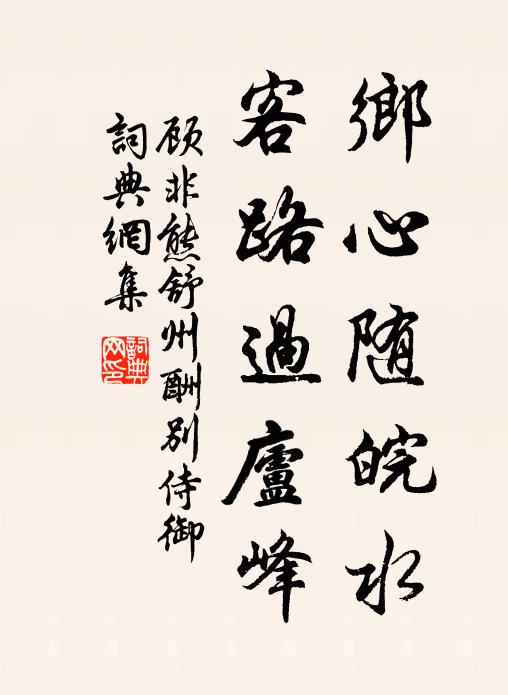 鄉心随皖水
客路過廬峰
顾非熊舒州酬别侍御
詞典網集
詞典
网印